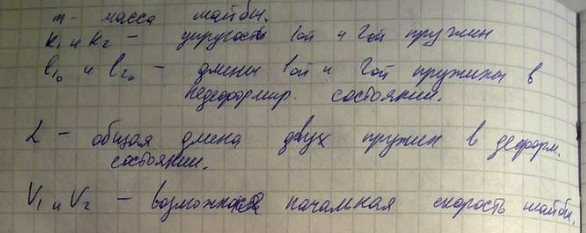 m - масса шайбы.
k₁ и k₂ - упругость 1ой и 2ой пружин
l₁₀ и l₂₀ - длины 1ой и 2ой пружины в
недеформир. состоянии.
L - общая длина двух пружин в деформ.
состоянии.
V₁ и V₂ - возможная начальная скорость шайбы.